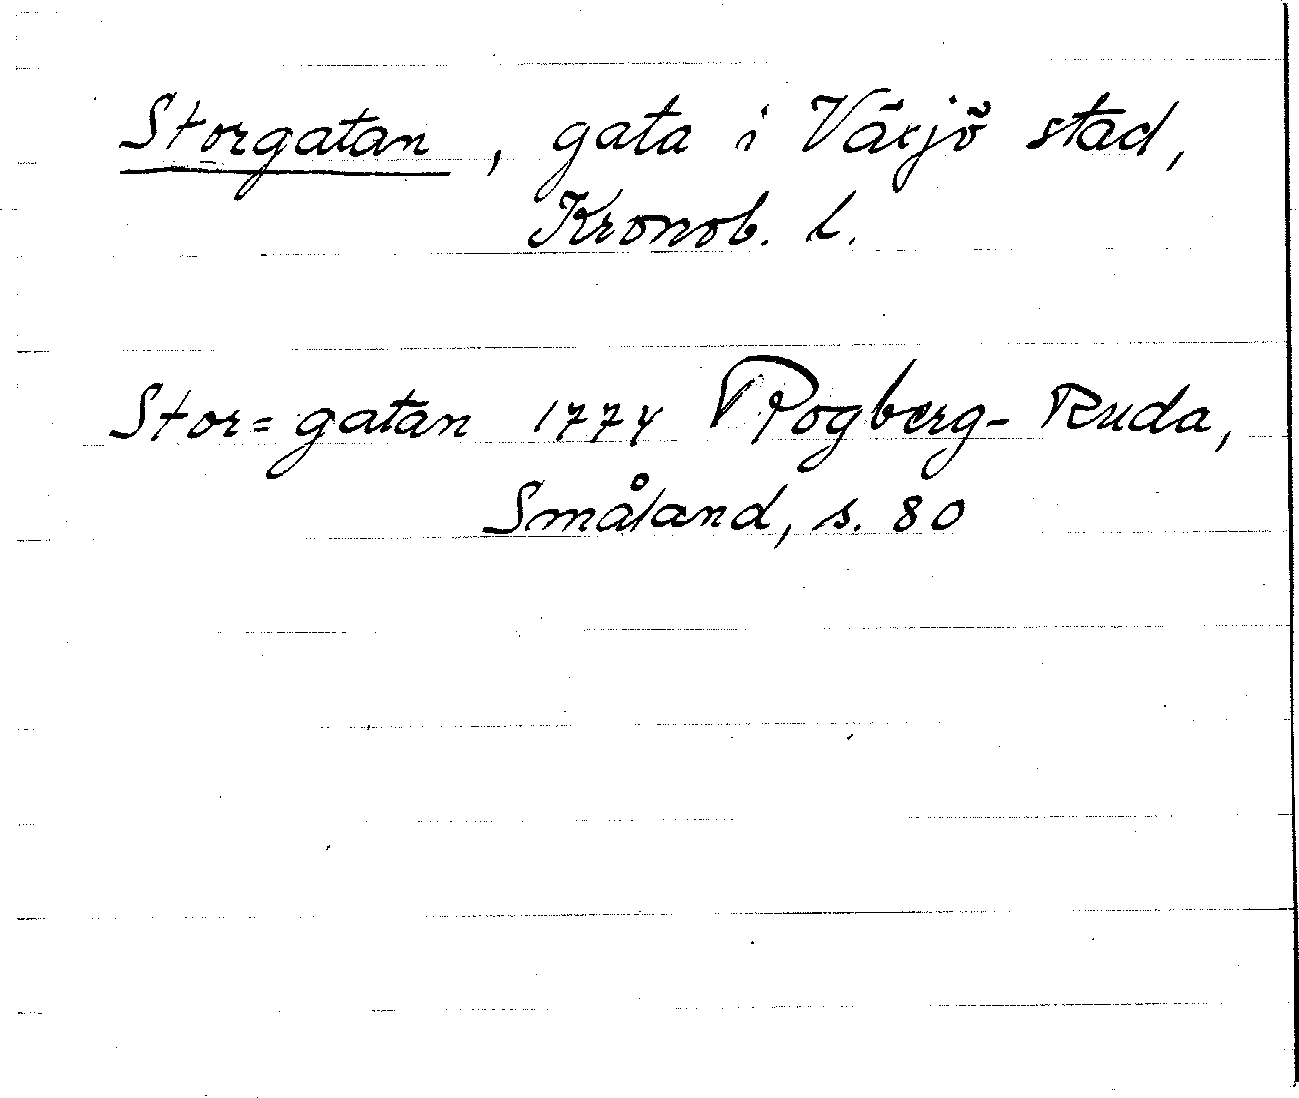 Storgatan, gata i Växjö stad,
Kronob. l.
Stor=gatan 1774 Rogberg-Ruda,
Småland, s. 80